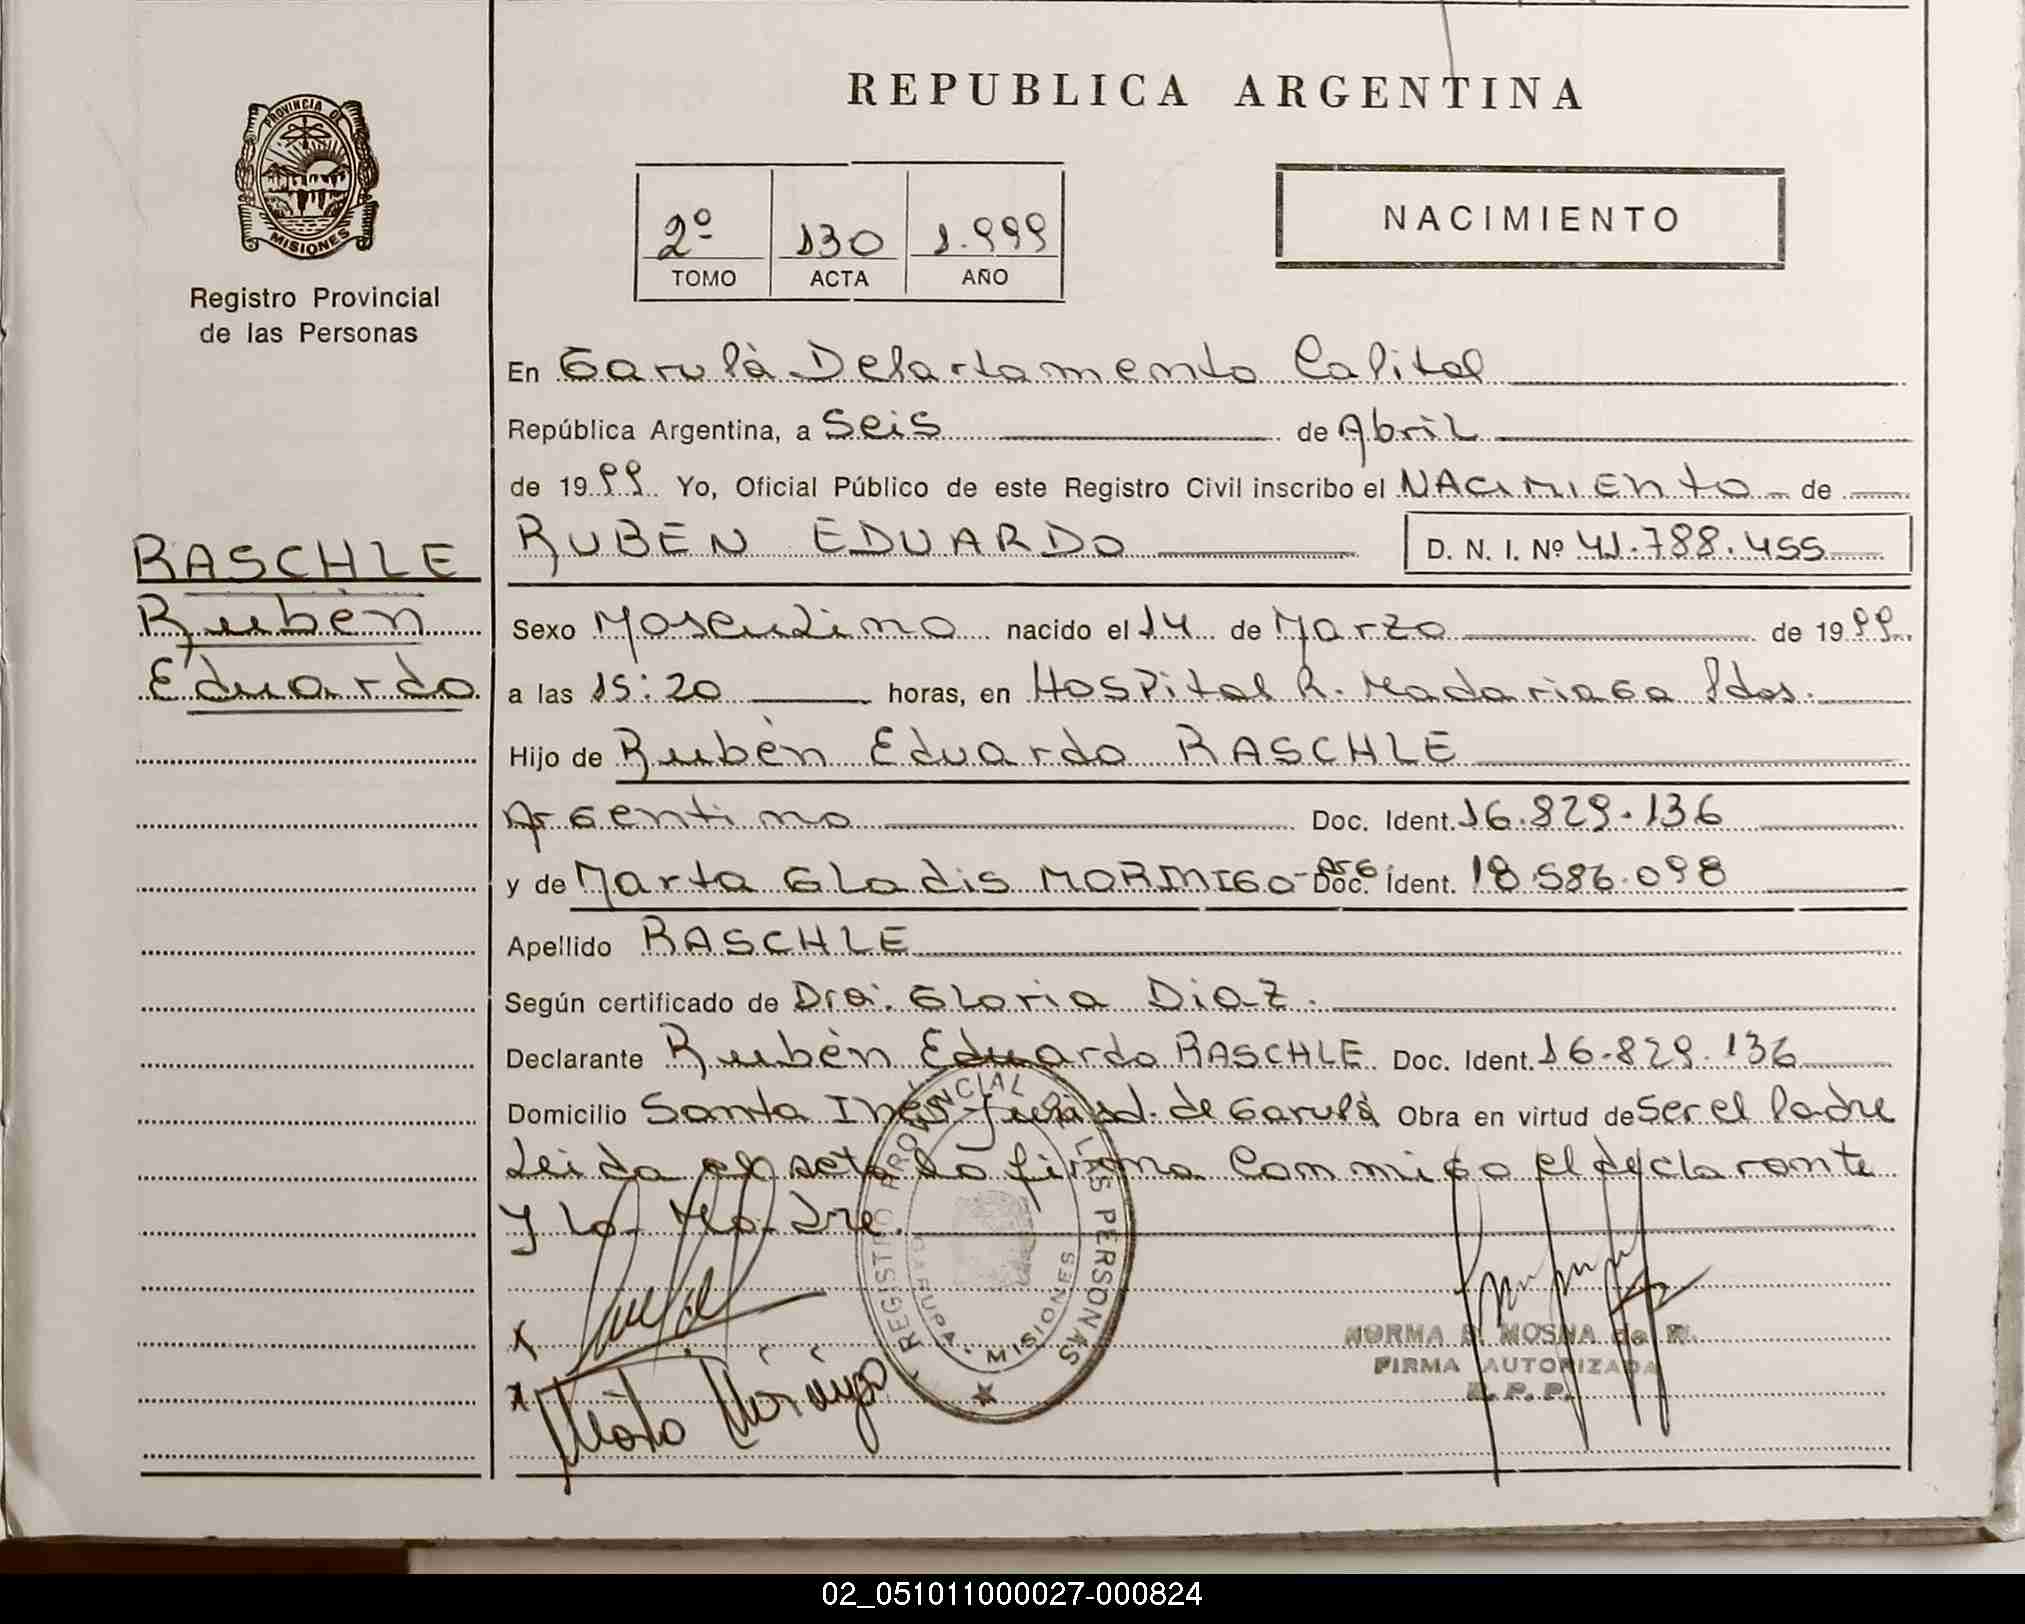 REPUBLICA ARGENTINA
PROVINCIA DE
MISIONES
Registro Provincial
de las Personas
2º 130 1.999
TOMO ACTA AÑO
NACIMIENTO
En Garupà Departamento Capital
República Argentina, a Seis de Abril
de 1999 Yo, Oficial Público de este Registro Civil inscribo el NACIMIENTO de
RUBEN EDUARDO D. N. I. Nº 41.788.455
RASCHLE
Rubèn
Eduardo
Sexo Masculino nacido el 14 de Marzo de 1999
a las 15:20 horas, en Hospital R. Madariaga Pdas.
Hijo de Rubèn Eduardo RASCHLE
Argentino Doc. Ident. 16.829.136
y de Marta Gladis MORMIGO- Arg. Doc. Ident. 18.586.098
Apellido RASCHLE
Según certificado de Dra. Gloria Diaz.
Declarante Rubèn Eduardo RASCHLE Doc. Ident. 16.829.136
Domicilio Santa Inès Jurisd. de Garupà Obra en virtud de Ser el Padre
Leida el acta la firma conmigo el declarante
y la Madre.
REGISTRO PROVINCIAL DE LAS PERSONAS
GARUPA - MISIONES
NORMA MOSNA de
FIRMA AUTORIZADA
R. P. P.
02_051011000027-000824